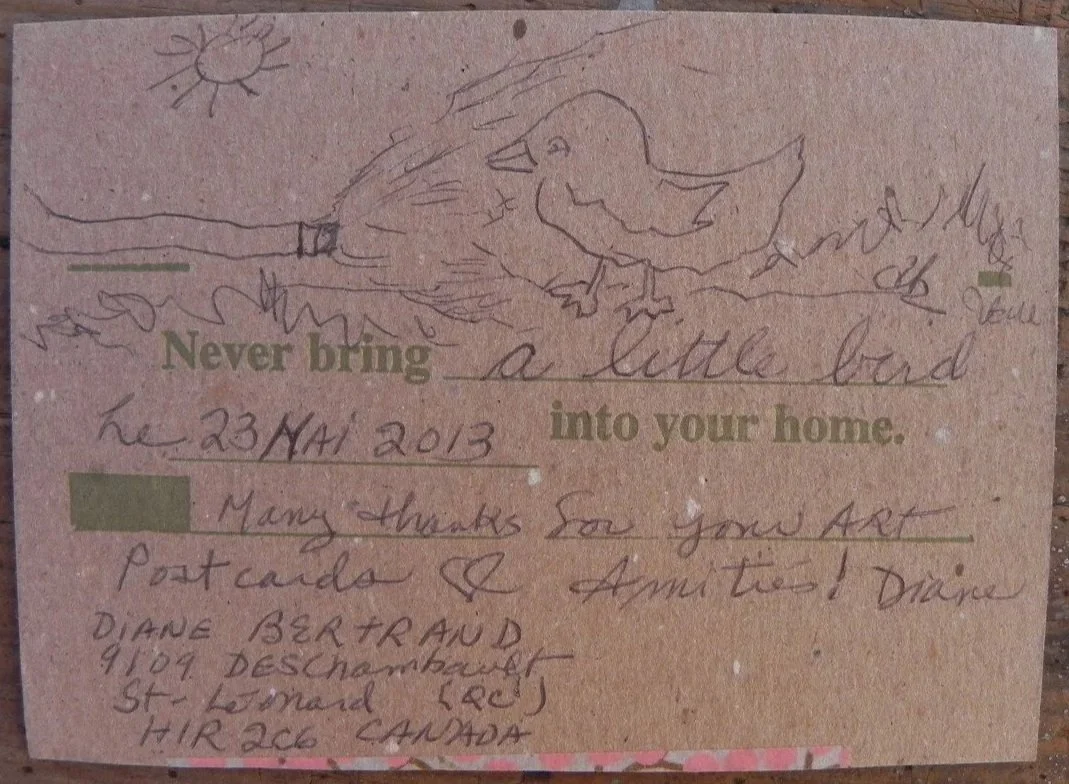 Never bring a little bird
into your home.
Le 23 MAi 2013
Many thanks for your ART
Postcards Amitiés! Diane
DiANE BERTRAND
9109 DESChambault
St-Léonard (QC)
H1R 2C6 CANADA